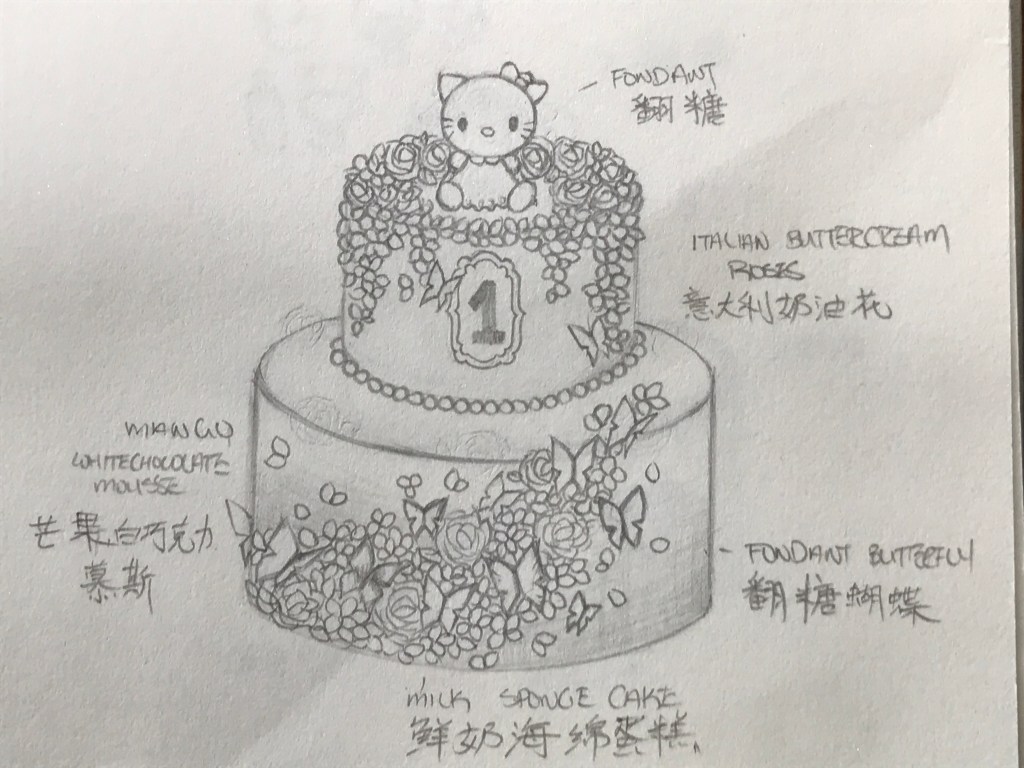 FONDANT
翻糖
ITALIAN BUTTERCREAM
ROSES
意大利奶油花
1
MANGO
WHITECHOCOLATE
MOUSSE
芒果白巧克力
慕斯
FONDANT BUTTERFLY
翻糖蝴蝶
MILK SPONGE CAKE
鲜奶海绵蛋糕